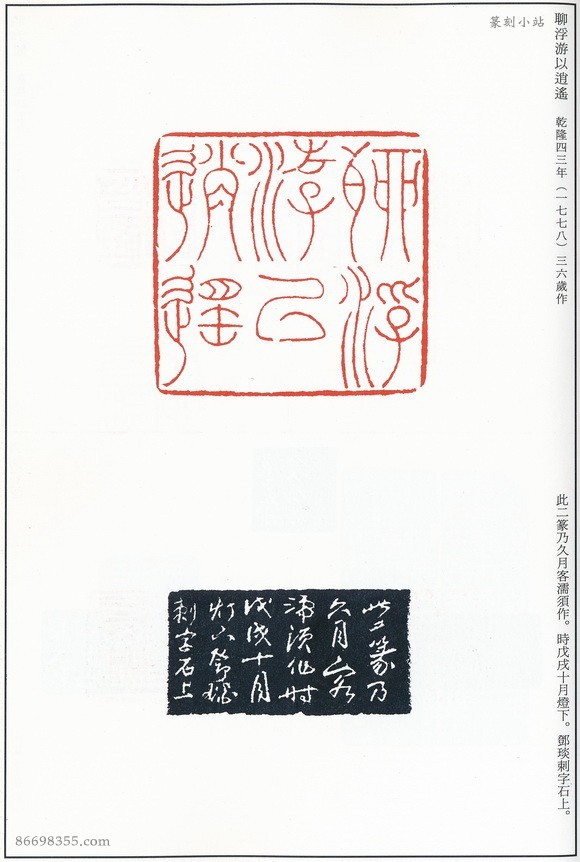 聊浮游以逍遙 乾隆四三年（一七七八）三六歲作
篆刻小站
聊浮
游㠯
逍遙
此二篆乃
久月客
濡須作時
戊戌十月
灯下鄧琰
刺字石上
此二篆乃久月客濡須作。時戊戌十月燈下。鄧琰刺字石上。
86698355.com